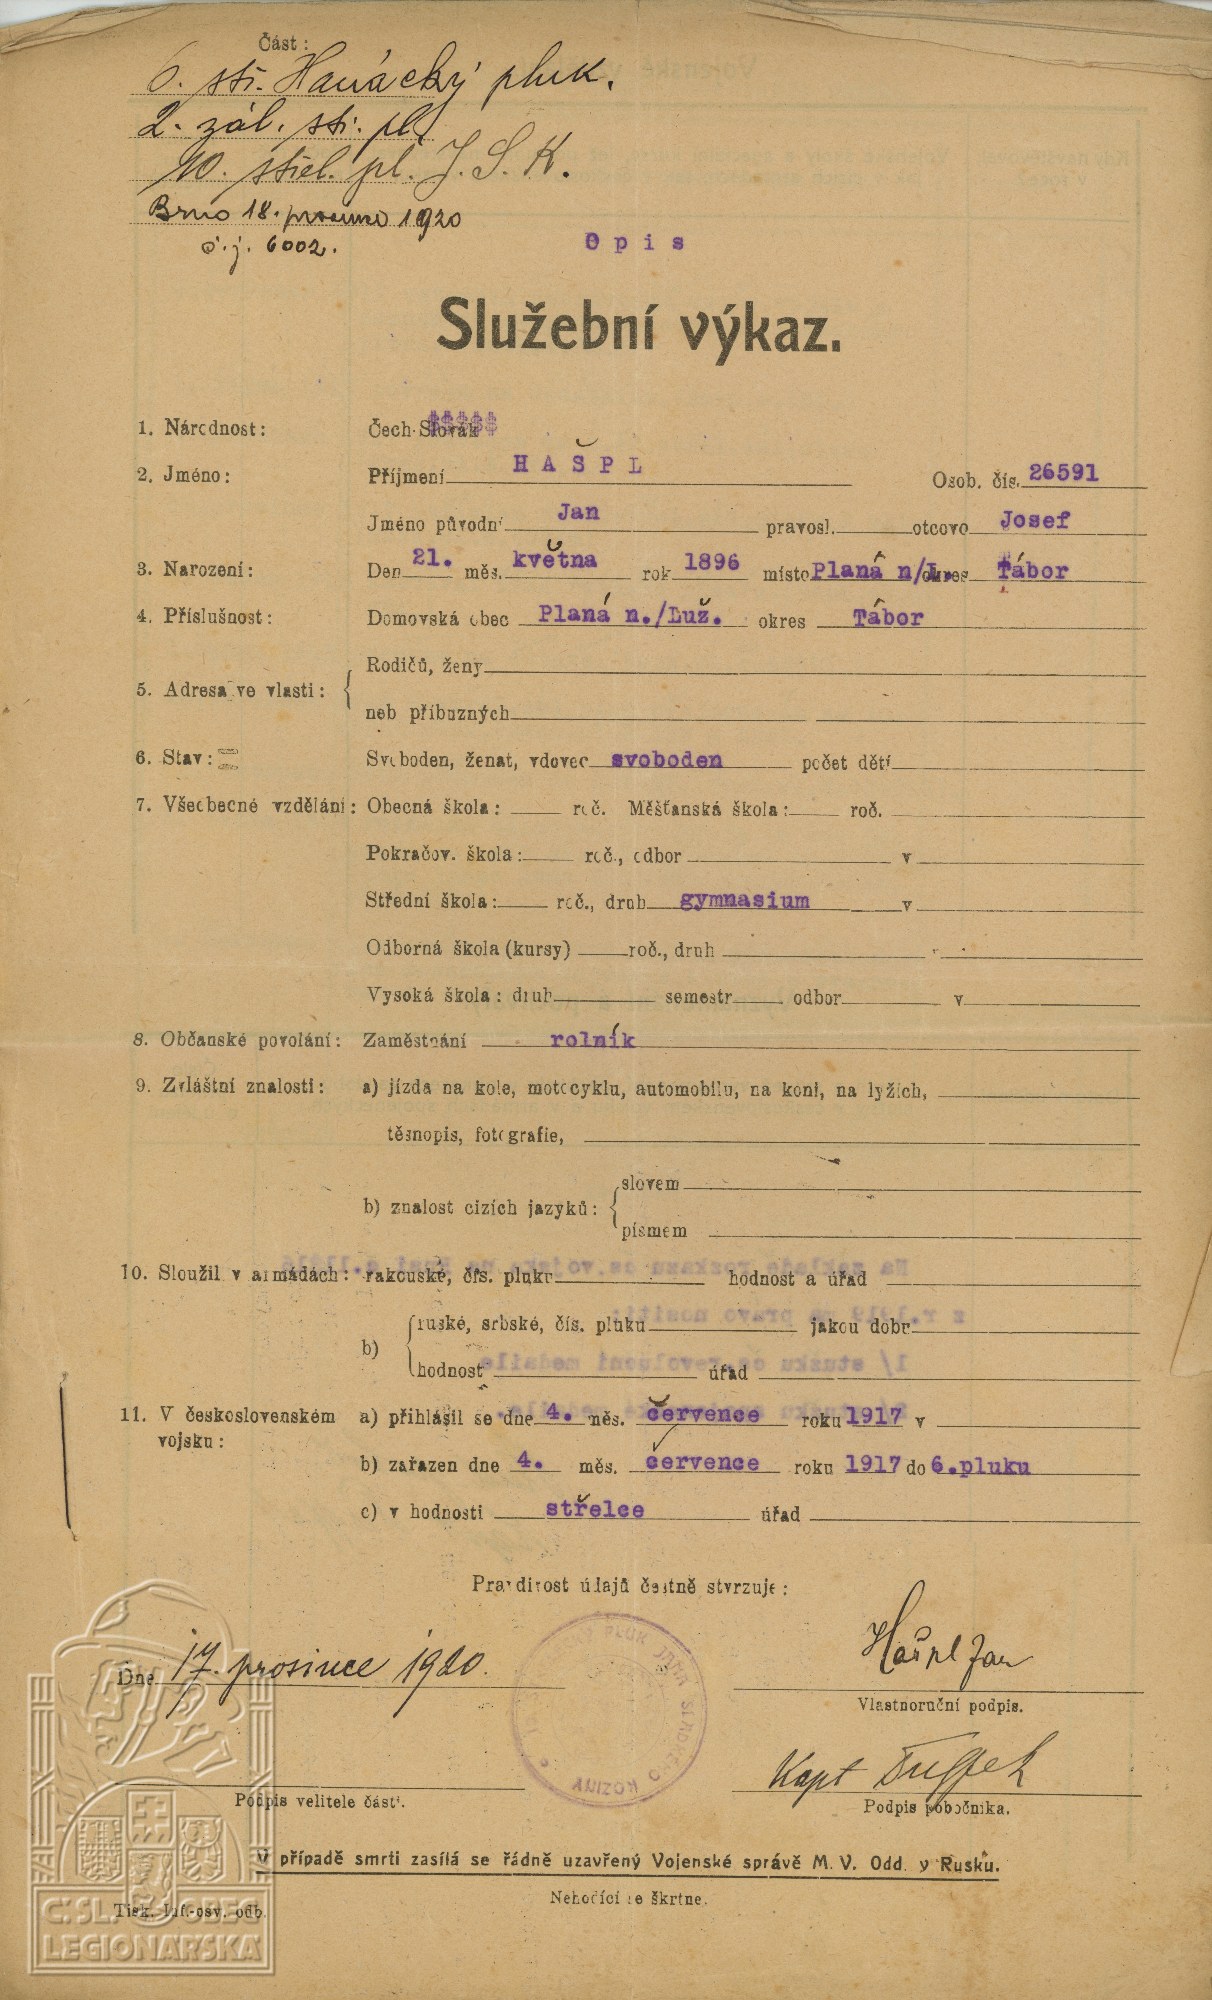 Část:
6. stř. Hanácký pluk.
2. zál. stř. pl.
10. střel. pl. J. S. K.
Brno 18. prosince 1920
č. j. 6002.
Opis
Služební výkaz.
1. Národnost: Čech-Slovák
2. Jméno: Příjmení HAŠPL Osob. čís. 26591
Jméno původní Jan pravosl. otcovo Josef
3. Narození: Den 21. měs. května rok 1896 místo Planá n/L. okres Tábor
4. Příslušnost: Domovská obec Planá n./Luž. okres Tábor
5. Adresa ve vlasti: Rodičů, ženy
neb příbuzných
6. Stav: Svoboden, ženat, vdovec svoboden počet dětí
7. Všeobecné vzdělání: Obecná škola: roč. Měšťanská škola: roč.
Pokračov. škola: roč., odbor v
Střední škola: roč., druh gymnasium v
Odborná škola (kursy) roč., druh
Vysoká škola: druh semestr odbor v
8. Občanské povolání: Zaměstnání rolník
9. Zvláštní znalosti: a) jízda na kole, motocyklu, automobilu, na koni, na lyžích,
těsnopis, fotografie,
b) znalost cizích jazyků: slovem
písmem
10. Sloužil v armádách: rakouské, čís. pluku hodnost a úřad
b) ruské, srbské, čís. pluku jakou dobu
hodnost úřad
11. V československém vojsku: a) přihlásil se dne 4. měs. července roku 1917 v
b) zařazen dne 4. měs. července roku 1917 do 6.pluku
c) v hodnosti střelce úřad
Pravdivost údajů čestně stvrzuje:
Dne 17. prosince 1920.
Hašpl Jan
Vlastnoruční podpis.
PLUK JANA SLADKÉHO KOZINY
Kapt
Podpis velitele části.
Podpis pobočníka.
V případě smrti zasílá se řádně uzavřený Vojenské správě M. V. Odd. v Rusku.
Nehodící se škrtne.
Tisk. Inf.-osv. odb.
Č. SL. OBEC
LEGIONÁŘSKÁ